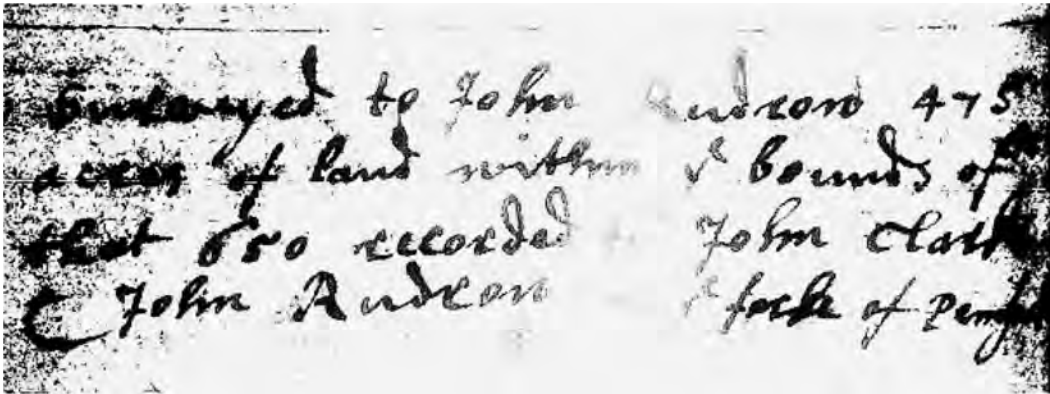 Surveyed to John Rudrow 475
acres of land within ye bounds of
that 650 recorded to John Clark
John Rudrow ye fork of